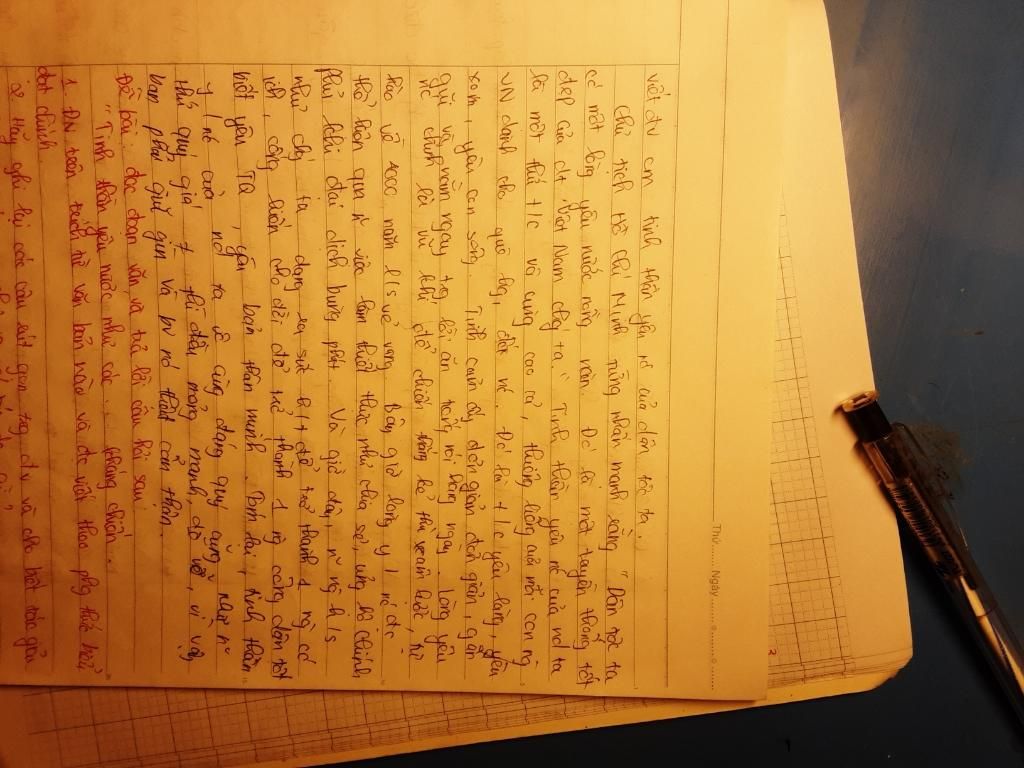 Thứ ........ Ngày ........
viết đv cm tinh thần yêu nc của dân tộc ta.
Chủ tịch Hồ Chí Minh từng nhấn mạnh rằng "Dân tộc ta
có một lòng yêu nước nồng nàn. Đó là một truyền thống tốt
đẹp của dt Việt Nam chúng ta." Tinh thần yêu nc của nd ta
là một thứ t/c vô cùng cao cả, thiêng liêng của mỗi con ng
VN dành cho quê hg, đất nc. Đó là t/c yêu làng, yêu
xóm, yêu con sông. Tình cảm ấy đơn giản đơn giản, gần
gũi và nằm ngay trg lời ăn tiếng nói hằng ngày. Lòng yêu
nc chính là vũ khí để chiến thắng kẻ thù xâm lược, tự
hào về 4000 năm l/s vẻ vang. Bây giờ lòng y / nc đc
thể hiện qua n~ việc làm thiết thực như chia sẻ, ủng hộ chính
phủ khi đại dịch bùng phát. Và giờ đây, n~ ng h/s
như chg ta đang ra sức h/t để trở thành 1 ng có
ích, cống hiến cho đời để trở thành 1 ng công dân tốt
biết yêu TQ, yêu bản thân mình. Tóm lại, tinh thần
y / nc của nd ta vô cùng đáng quý cũng như n~
thứ quý giá # thì đều mỏng manh, dễ vỡ, vì vậy
bạn phải giữ gìn và bv nó thật cẩn thận.
Đề bài: đọc đoạn văn và trả lời câu hỏi sau
"Tinh thần yêu nước như các ... kháng chiến."
1. ĐV trên trích từ văn bản nào và đc viết theo png thức biểu
đạt chính
2. Hãy ghi lại các câu rút gọn trg đv và cho biết tác giả